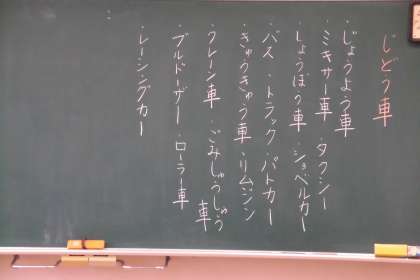 じどう車
・じょうよう車
・ミキサー車 ・タクシー
・しょうぼう車 ・ショベルカー
・バス ・トラック ・パトカー
・きゅうきゅう車 ・リムジン
・クレーン車 ・ごみしゅうしゅう車
・ブルドーザー ・ローラー車
・レーシングカー